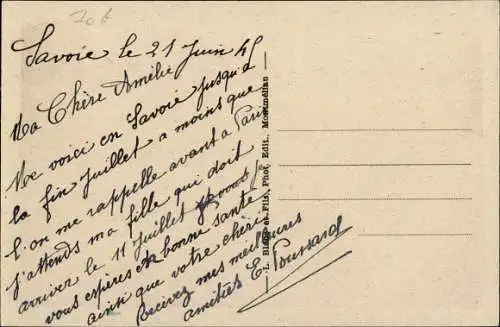 Savoie le 21 Juin 45
Ma Chère Amélie
Me voici en Savoie jusqu'à
la fin Juillet a moins que
l'on me rappelle avant a Paris
J'attends ma fille qui doit
arriver le 11 Juillet
vous espères en bonne santé
ainsi que votre chéri
Recevez mes meilleures
amitiés E. Poussard
Fils, Phot. Edit., Montmélian